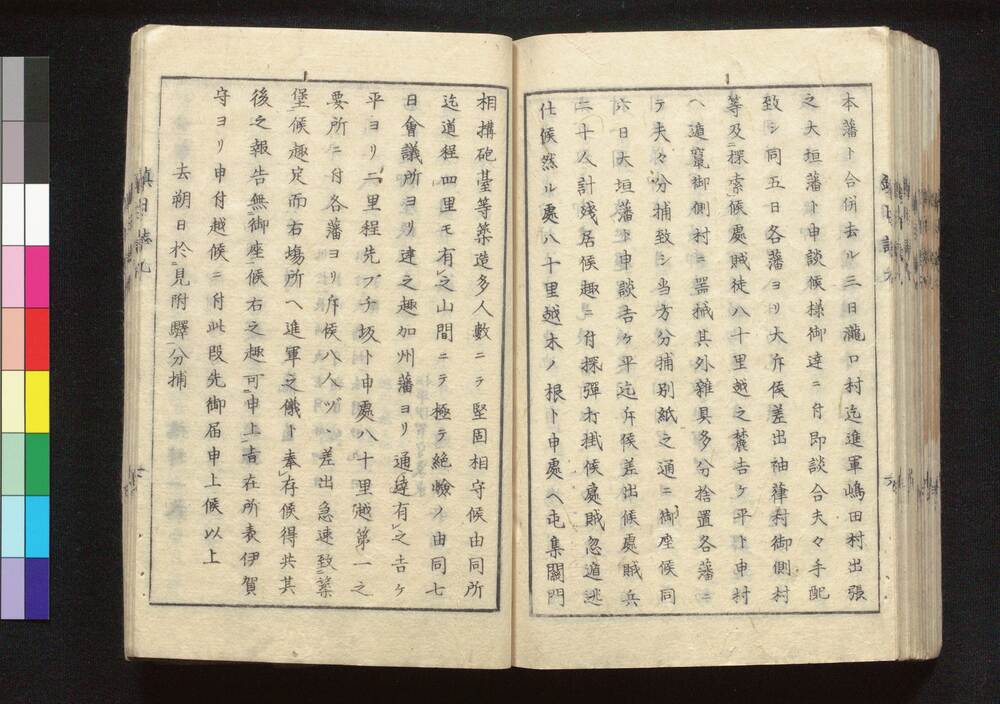 本藩ト合併去ル三日瀧口村迄進軍嶋田村出張
之大垣藩ト申談候様御達ニ付即談合夫々手配
致シ同五日各藩ヨリ大斥候差出袖葎村御側村
等及ニ探索候處賊徒八十里越之麓吉ケ平ト申村
ヘ遁竄御側村ニ器械其外雜具多分捨置各藩ニ
テ夫々分捕致シ当方分捕別紙之通ニ御座候同
六日大垣藩ト申談吉ケ平迄斥候差出候處賊兵
二十人計残居候趣ニ付探彈打掛候處賊忽遁迯
仕候然ル處八十里越木ノ根ト申處ヘ屯集關門
相搆砲臺等築造多人數ニテ堅固相守候由同所
迄道程四里モ有レ之山間ニテ極テ絶嶮ノ由同七
日會議所ヨリ達之趣加州藩ヨリ通達有レ之吉ケ
平ヨリ二里程先ブナ坂ト申處八十里越第一之
要所ニ付各藩ヨリ斥候八人ヅヽ差出急速致ニ築
堡候趣定而右場所ヘ進軍之儀ト奉レ存候得共其
後之報告無ニ御座候右之趣可ニ申上旨在所表伊賀
守ヨリ申付越候ニ付此段先御届申上候以上
去朔日於ニ見附驛分捕